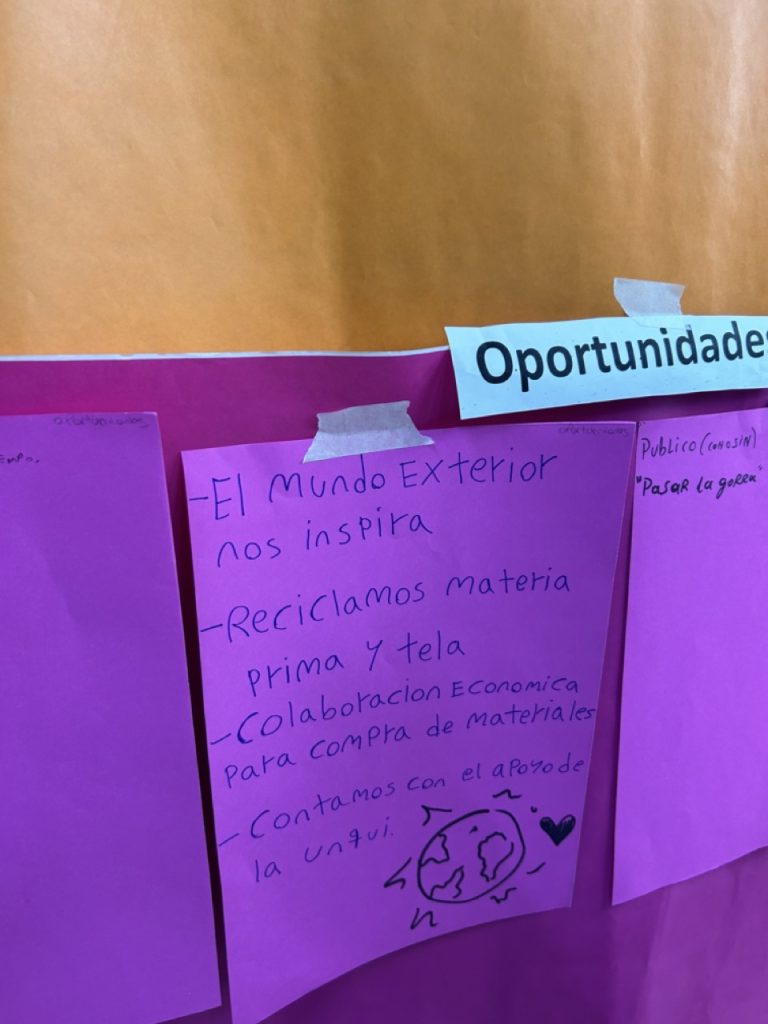 Oportunidades
oportunidades
empo.
oportunidades
-El mundo Exterior
nos inspira
-Reciclamos materia
prima y tela
-Colaboracion Economica
para compra de materiales
-Contamos con el apoyo de
la unqui.
Publico (con o sin)
"Pasar la gorra"